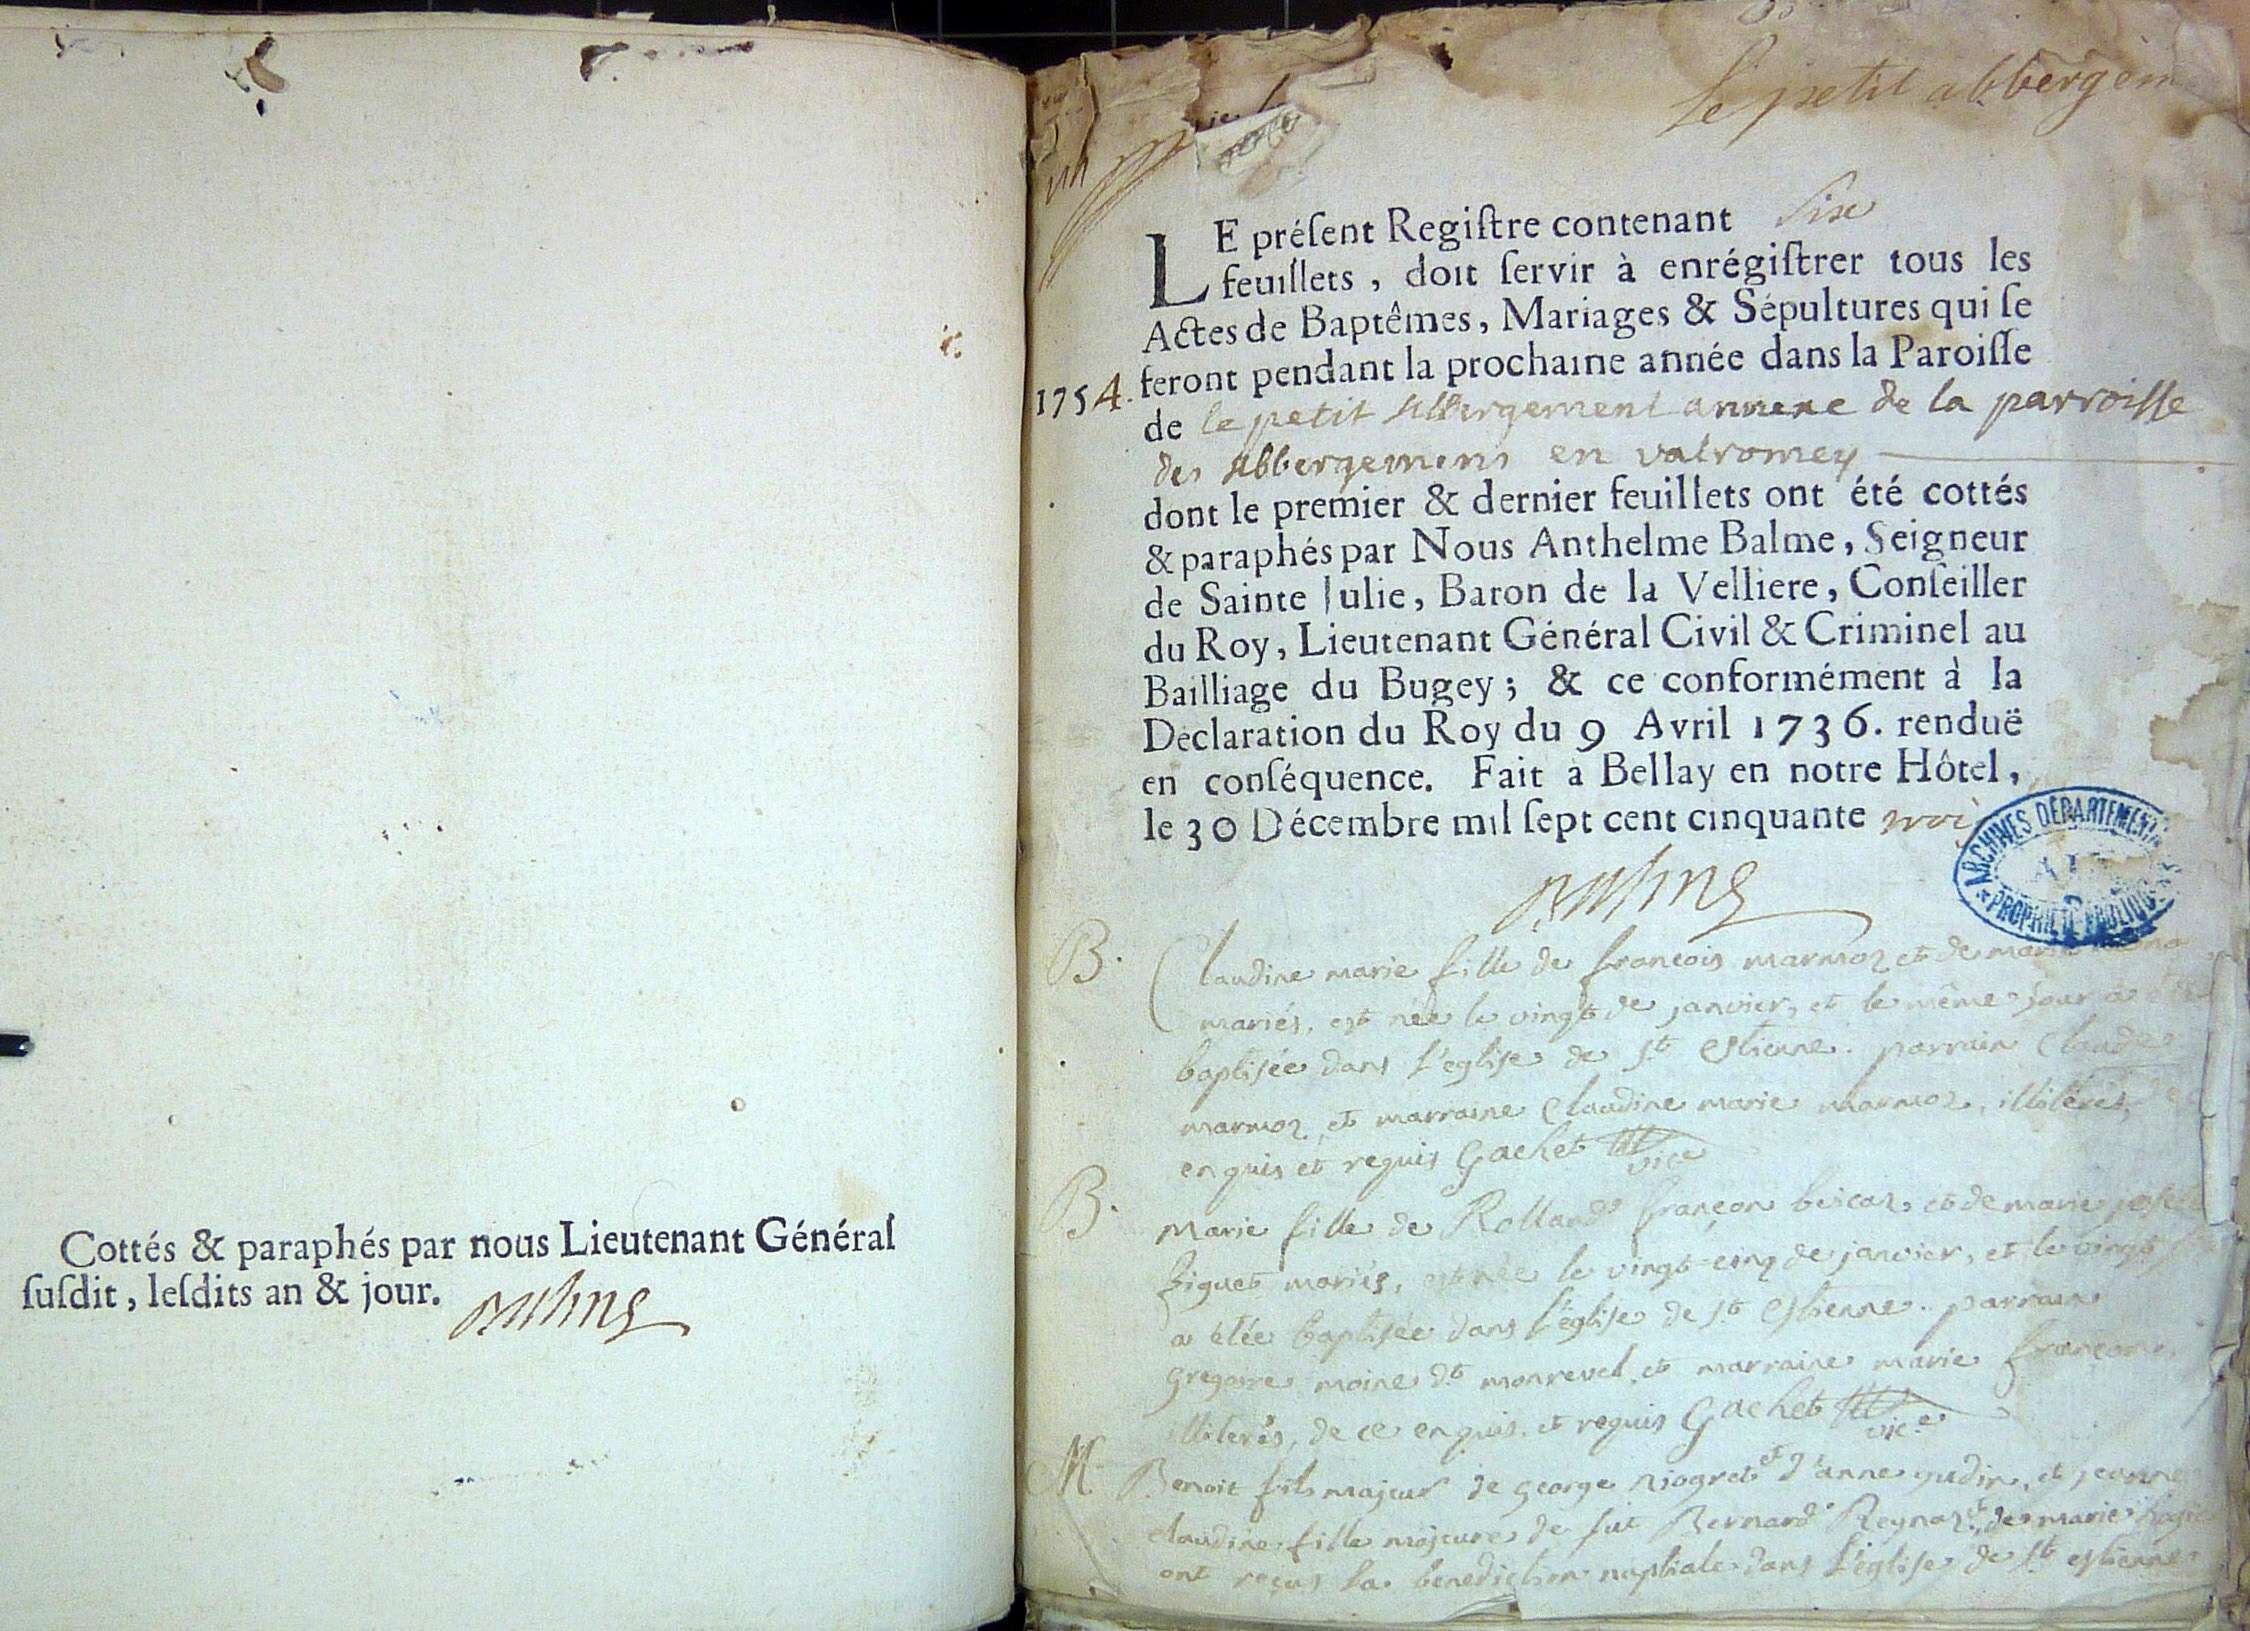 Cottés & paraphés par nous Lieutenant Général
ſuſdit, leſdits an & jour.
le petit abbergem
LE préſent Regiſtre contenant Six
feuillets, doit ſervir à enrégiſtrer tous les
Actes de Baptêmes, Mariages & Sépultures qui ſe
1754. feront pendant la prochaine année dans la Paroiſſe
de le petit Abbergement annexe de la parroisse
des Abbergemens en valromey
dont le premier & dernier feuillets ont été cottés
& paraphés par Nous Anthelme Balme, Seigneur
de Sainte Julie, Baron de la Velliere, Conſeiller
du Roy, Lieutenant Général Civil & Criminel au
Bailliage du Bugey; & ce conformément à la
Declaration du Roy du 9 Avril 1736. renduë
en conſéquence. Fait a Bellay en notre Hôtel,
le 30 Décembre mil ſept cent cinquante troi
ARCHINES DÉPARTEMENTA
* PROPRIÉTÉ PUBLIQUE
B. Claudine marie fille de françois marmoz et de marie
mariés, est née le vingt de janvier, et le même jour a
baptisée dans l'eglise de st estienne. parrain Claude
marmoz, et marraine Claudine marie marmoz, illiterés,
enquis et requis Gachet vice
B. Marie fille de Rolland françon beicoz et de marie
figuet mariés, est née le vingt-cinq de janvier, et le vingt
a étée baptisée dans l'église de st estienne. parrain
gregoire moine dt monrevel, et marraine marie françon
illiterés, de ce enquis, et requis Gachet vice
M Benoit fils majeur de george niogret et d'anne gudin, et jeanne
claudine fille majeure de fut Bernard Reynoz, et de marie
ont reçus la benediction nuptiale dans l'église de st estienne